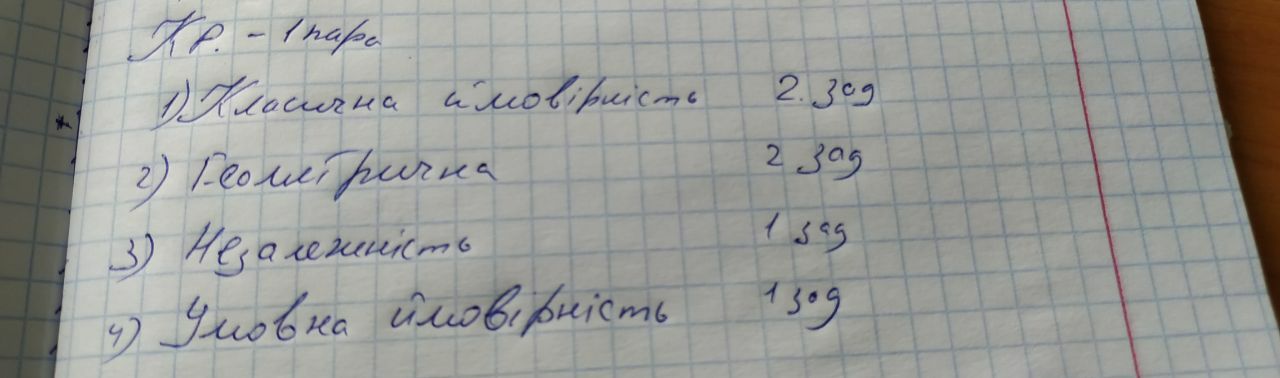 Кр. - 1 пара
1) Класична ймовірність 2. зад
2) Геометрична 2 зад
3) Незалежність 1 зад
4) Умовна ймовірність 1 зад